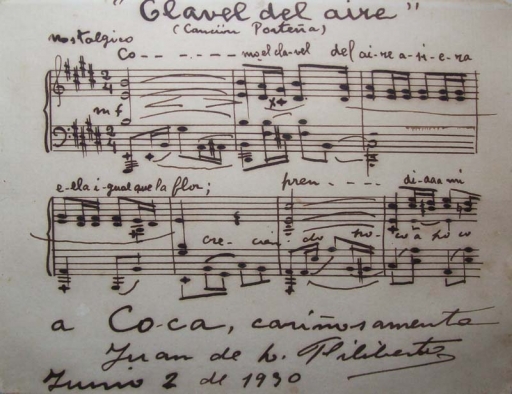 "Clavel del aire"
(Canción Porteña)
nostalgico
Co - - - - - mo el clavel del ai-re a-si e-ra
mf
e-lla i-gual que la flor; pren - - - - di-aaa mi
cre- cien- do po- co a po co
a Co-ca, cariñosamente
Juan de D. Filiberto
Junio 2 de 1930